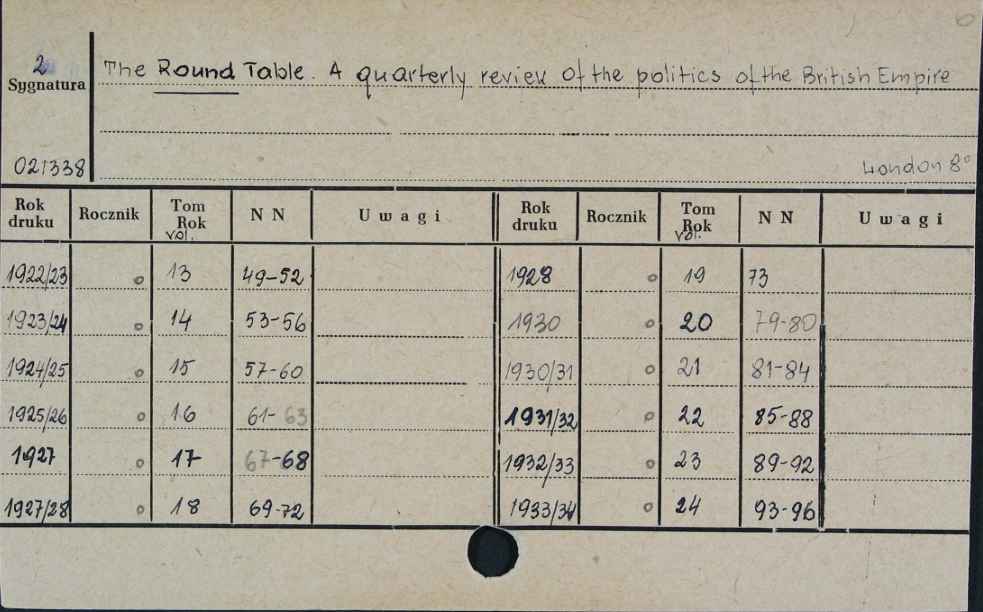 2
Sygnatura
The Round Table. A quarterly review of the politics of the British Empire
021338
London 8°
Rok druku Rocznik Tom Rok vol. N N Uwagi Rok druku Rocznik Tom Rok vol. N N Uwagi
1922/23 o 13 49-52 1928 o 19 73
1923/24 o 14 53-56 1930 o 20 79-80
1924/25 o 15 57-60 1930/31 o 21 81-84
1925/26 o 16 61-63 1931/32 o 22 85-88
1927 o 17 67-68 1932/33 o 23 89-92
1927/28 o 18 69-72 1933/34 o 24 93-96